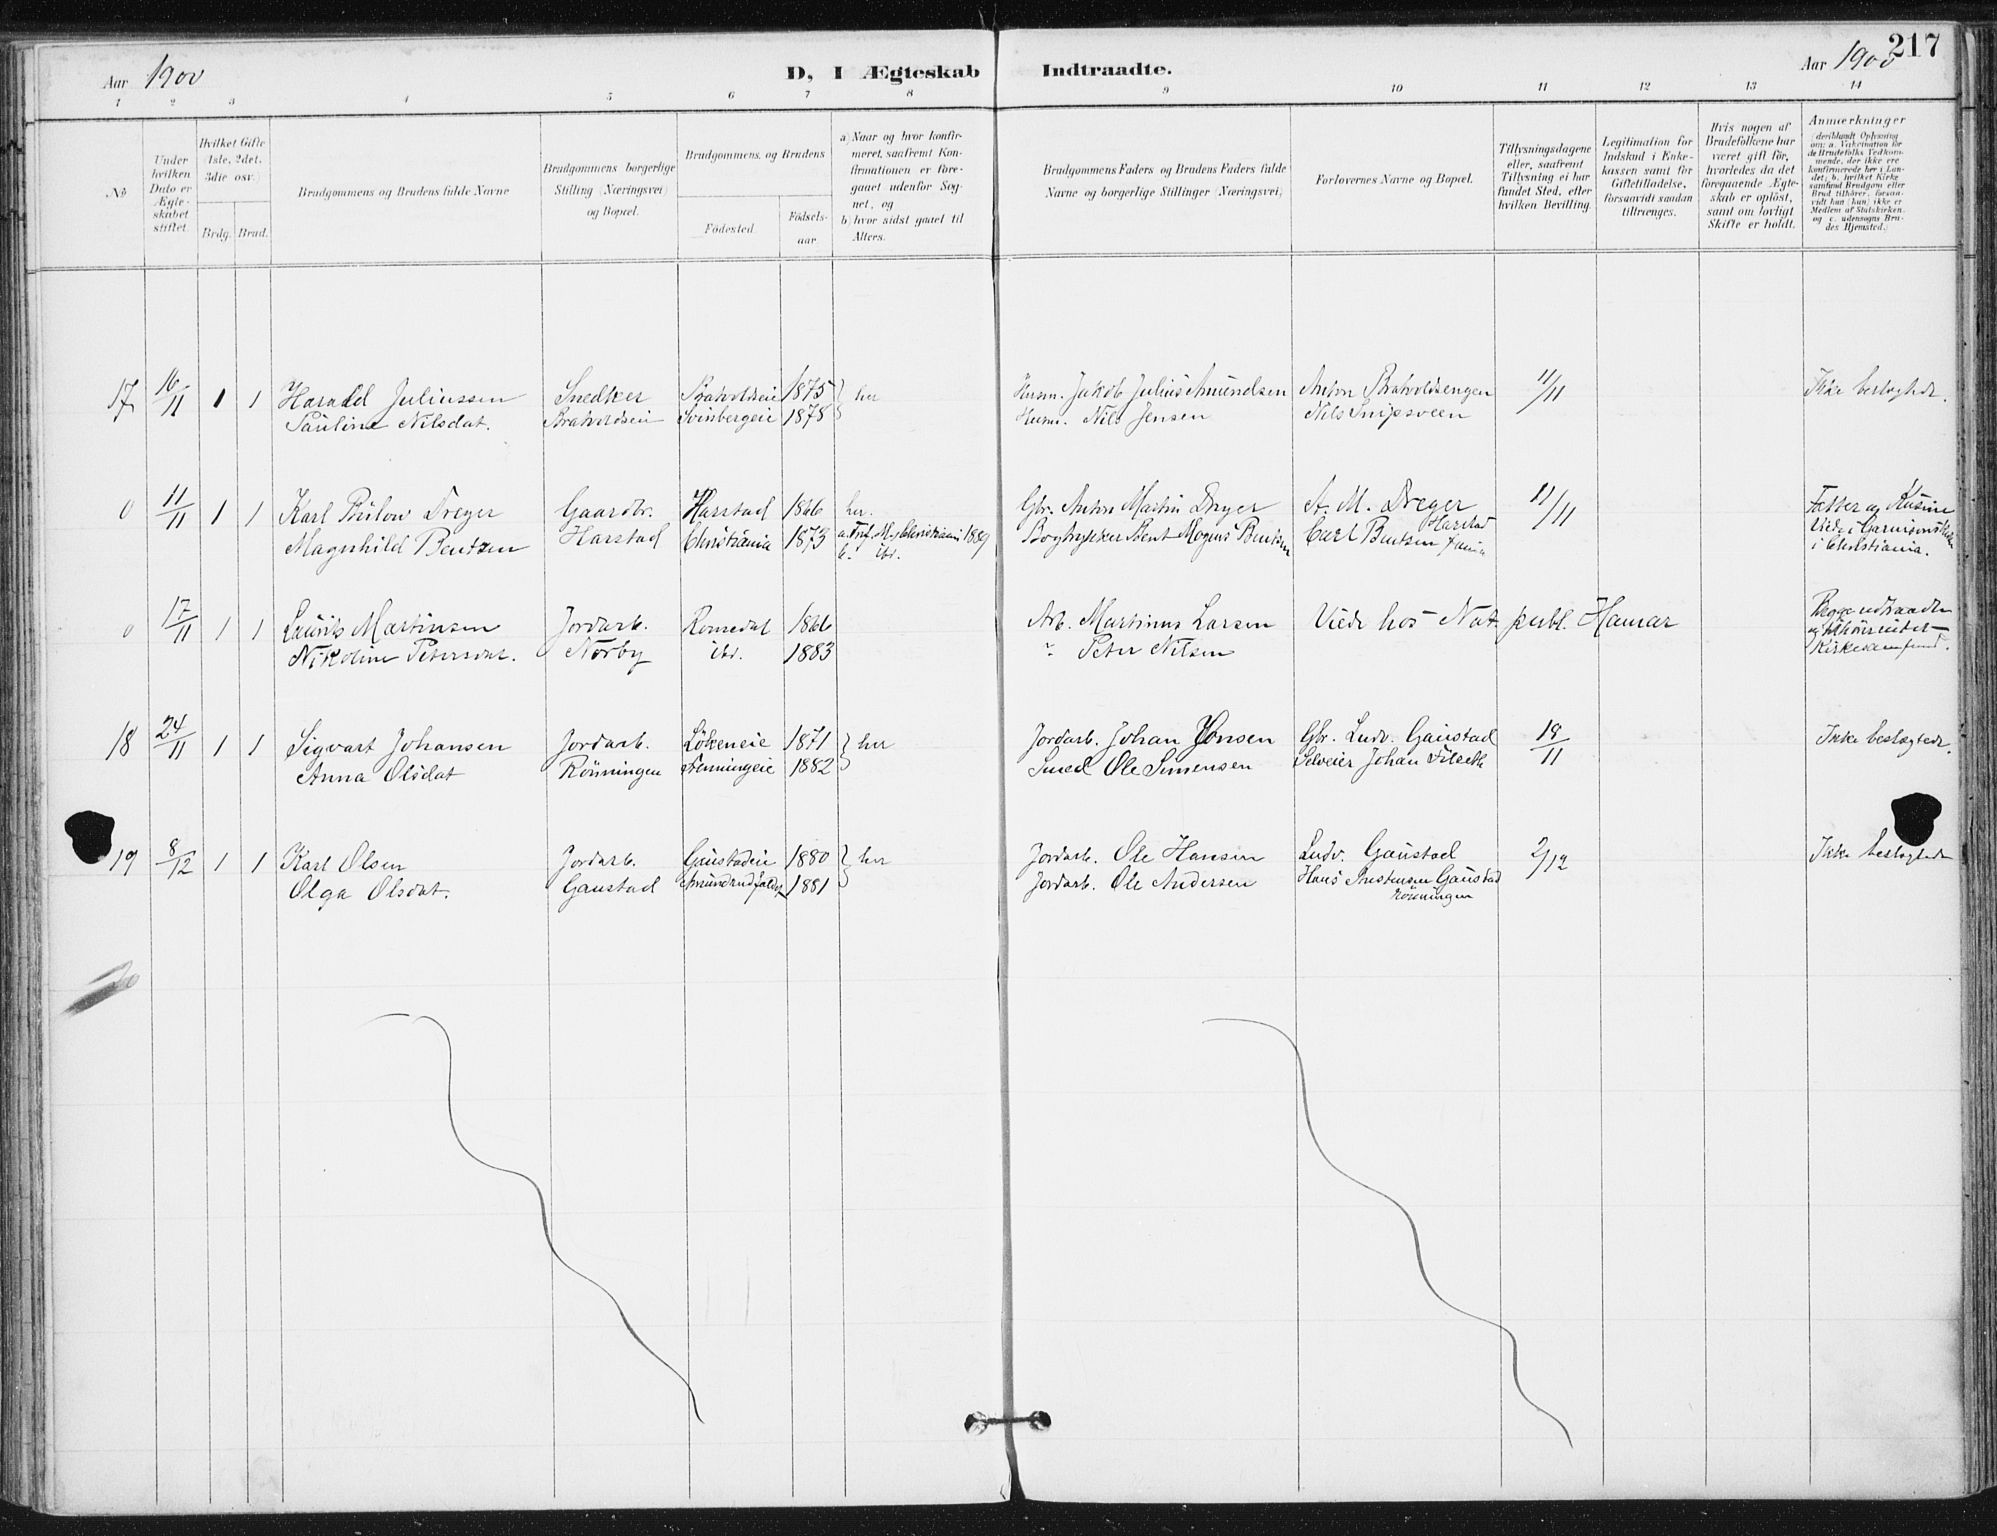 217
Aar 1900
D, I Ægteskab Indtraadte.
Aar 1900
1 2 3 4 5 6 7 8 9 10 11 12 13 14
No
Under hvilken Dato er Ægteskabet stiftet.
Hvilket Gifte (1ste, 2det, 3die osv.)
Brdg. Brud.
Brudgommens og Brudens fulde Navne
Brudgommens borgerlige Stilling (Næringsvei) og Bopæl.
Brudgommens og Brudens
Fødested.
Fødselsaar.
a) Naar og hvor konfirmeret, saafremt Konfirmationen er foregaaet udenfor Sognet, og
b) hvor sidst gaaet til Alters.
Brudgommens Faders og Brudens Faders fulde Navne og borgerlige Stillinger (Næringsvei)
Forlovernes Navne og Bopæl.
Tillysningsdagene eller, saafremt Tillysning ei har fundet Sted, efter hvilken Bevilling.
Legitimation for Indskud i Enkekassen samt for Giftetilladelse, forsaavidt saadan tiltrænges.
Hvis nogen af Brudefolkene har været gift før, hvorledes da det foregaaende Ægteskab er opløst, samt om lovligt Skifte er holdt.
Anmærkninger
(deriblandt Oplysning om: a. Vakcination for de Brudefolks Vedkommende, der ikke ere konfirmerede her i Landet; b. hvilket Kirkesamfund Brudgom eller Brud tilhører, forsaavidt han (hun) ikke er Medlem af Statskirken, og c. udensogns Brudes Hjemsted.)
17 16/11 1 1 Harald Juliussen Snedker Brakvoldseie 1875 } her Husm. Jakob Julius Amundsen Anton Brakvoldsengen 11/11 Ikke beslægtede.
Pauline Nilsdat. Brakvoldseie Svinbergeie 1878 Husm. Nils Jensen Nils Snipsveen
0 11/11 1 1 Karl Bülow Dreyer Gaardbr. Harstad 1866 her. Gbr. Anton Martin Dreyer A. M. Dreyer Harstad 11/11 Fætter og Kusine
Magnhild Bentzen Harstad Christiania 1873 Christiania 1889 Bogtrykker Bent Mogens Bentzen Carl Bentsen Viede i Garnisonskirken
b. ibd. i Christiania.
0 17/11 1 1 Laurits Martinsen Jordarb. Romedal 1866 Arb. Martinus Larsen Viede hos Not. publ. Hamar Begge udtraadte
Nikoline Petersdat. Norby ibd. 1883 " Peter Nilsen og tilhører intet
Kirkesamfund.
18 24/11 1 1 Sigvart Johansen Jordarb. Løkeneie 1871 } her Jordarb. Johan Jonsen Gbr. Ludv. Gaustad 18/11 Ikke beslægtede.
Anna Olsdat Rönningen 1882 Smed Ole Simensen Selveier Johan
19 8/12 1 1 Karl Olsen Jordarb. Gaustadeie 1880 } her Jordarb. Ole Hansen Ludv. Gaustad 2/12 Ikke beslægtede
Olga Olsdat. Gaustad 1881 Jordarb. Ole Andersen Hans Gaustad
Rönningen
20